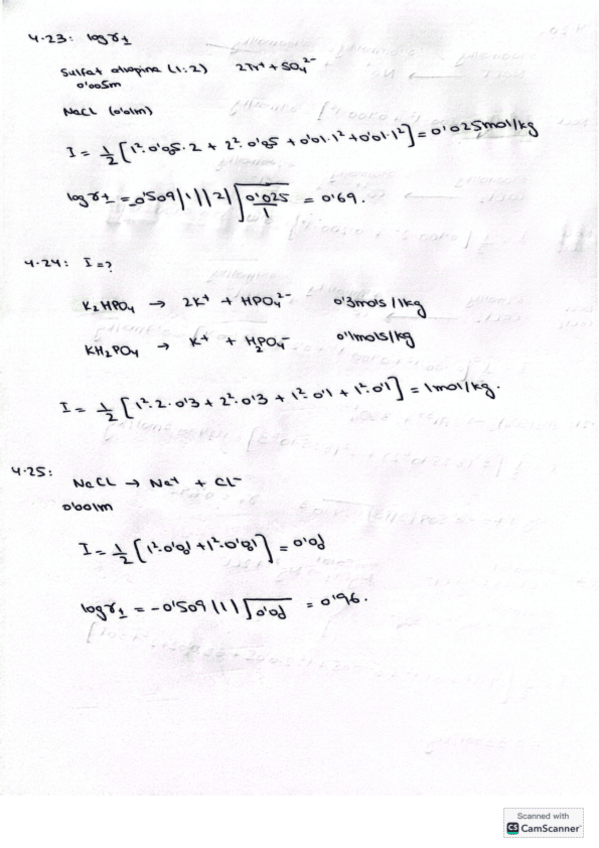 4.23: log γ±
Sulfat atropina (1:2) 2Tr⁺ + SO₄²⁻
0'005m
NaCl (0'01m)
I = 1/2 [1²·0'05·2 + 2²·0'05 + 0'01·1² + 0'01·1²] = 0'025mol/kg
log γ± = -0'509 |1||2| √(0'025/1) = 0'69.
4.24: I = ?
K₂HPO₄ → 2K⁺ + HPO₄²⁻ 0'3mols/1kg
KH₂PO₄ → K⁺ + H₂PO₄⁻ 0'1mols/kg
I = 1/2 [1²·2·0'3 + 2²·0'3 + 1²·0'1 + 1²·0'1] = 1mol/kg.
4.25:
NaCl → Na⁺ + Cl⁻
I = 1/2
log γ± = -0'509 |1| = 0'96.
Scanned with
CS CamScanner